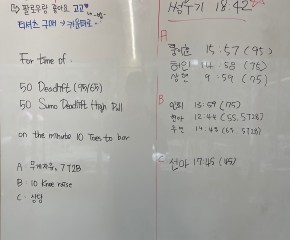 팔로우랑 좋아요 고고
티셔츠 구매 → 귀욤뽀짝
For time of.
50 Deadlift (95/65)
50 Sumo Deadlift High Pull
on the minute 10 Toes to bar
A : 무게자유, 7T2B
B : 10 Knee raise
C : 상담
18:42
A
15:57 (95)
14:58 (75)
상현 9:59 (75)
B
13:59 (75)
현아 12:44 (55. 572B)
14:48 (65. 572B)
C 선아 17:45 (45)